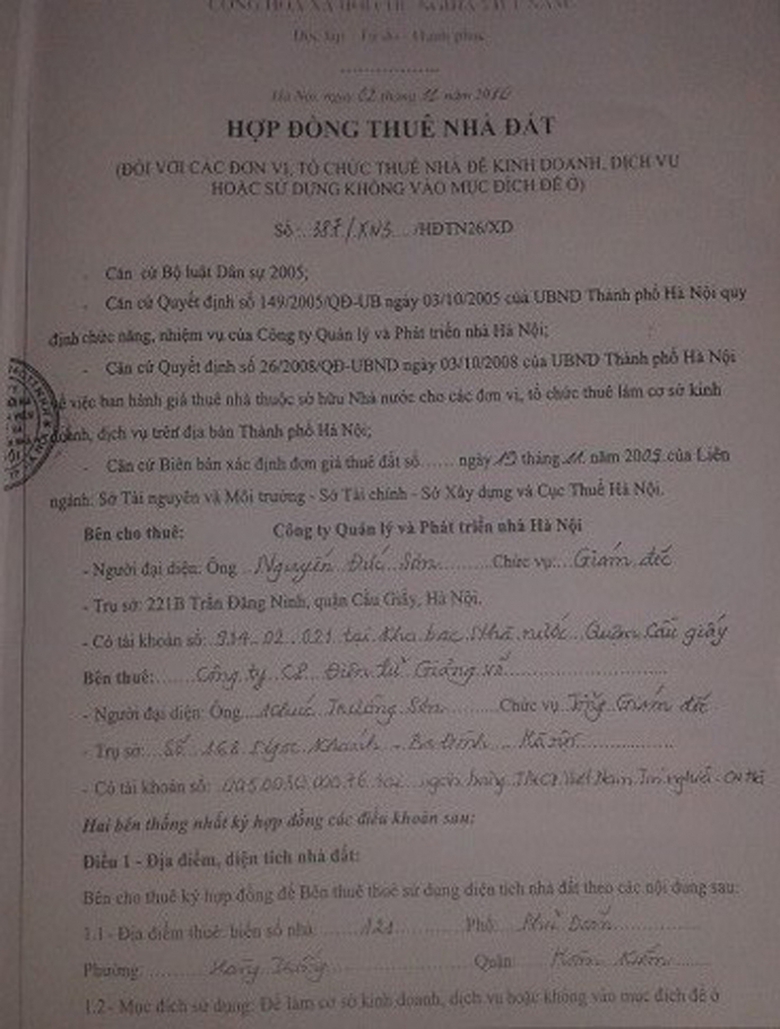 CỘNG HÒA XÃ HỘI CHỦ NGHĨA VIỆT NAM
Độc lập - Tự do - Hạnh phúc
Hà Nội, ngày 02 tháng 12 năm 2010
HỢP ĐỒNG THUÊ NHÀ ĐẤT
(ĐỐI VỚI CÁC ĐƠN VỊ, TỔ CHỨC THUÊ NHÀ ĐỂ KINH DOANH, DỊCH VỤ
HOẶC SỬ DỤNG KHÔNG VÀO MỤC ĐÍCH ĐỂ Ở)
Số: 387/XN3 /HĐTN26/XD
- Căn cứ Bộ luật Dân sự 2005;
- Căn cứ Quyết định số 149/2005/QĐ-UB ngày 03/10/2005 của UBND Thành phố Hà Nội quy
định chức năng, nhiệm vụ của Công ty Quản lý và Phát triển nhà Hà Nội;
- Căn cứ Quyết định số 26/2008/QĐ-UBND ngày 03/10/2008 của UBND Thành phố Hà Nội
về việc ban hành giá thuê nhà thuộc sở hữu Nhà nước cho các đơn vị, tổ chức thuê làm cơ sở kinh
doanh, dịch vụ trên địa bàn Thành phố Hà Nội;
- Căn cứ Biên bản xác định đơn giá thuê đất số...... ngày 19 tháng 11 năm 2009 của Liên
ngành: Sở Tài nguyên và Môi trường - Sở Tài chính - Sở Xây dựng và Cục Thuế Hà Nội.
Bên cho thuê: Công ty Quản lý và Phát triển nhà Hà Nội
- Người đại diện: Ông Nguyễn Đức Sơn Chức vụ: Giám đốc
- Trụ sở: 221B Trần Đăng Ninh, quận Cầu Giấy, Hà Nội.
- Có tài khoản số: 934.02.021 tại kho bạc Nhà nước Quận Cầu giấy
Bên thuê: Công ty CP Điện tử Giảng võ
- Người đại diện: Ông Trường Sơn Chức vụ Tổng Giám đốc
- Trụ sở: Số 168 Ngọc Khánh - Ba Đình - Hà Nội
- Có tài khoản số: tại ngân hàng TMCP Việt Nam
Hai bên thống nhất ký hợp đồng các điều khoản sau:
Điều 1 - Địa điểm, diện tích nhà đất:
Bên cho thuê ký hợp đồng để Bên thuê thuê sử dụng diện tích nhà đất theo các nội dung sau:
1.1- Địa điểm thuê: biển số nhà 121 Phố: Phủ Doãn
Phường: Hàng Trống Quận: Hoàn Kiếm
1.2- Mục đích sử dụng: Để làm cơ sở kinh doanh, dịch vụ hoặc không vào mục đích để ở